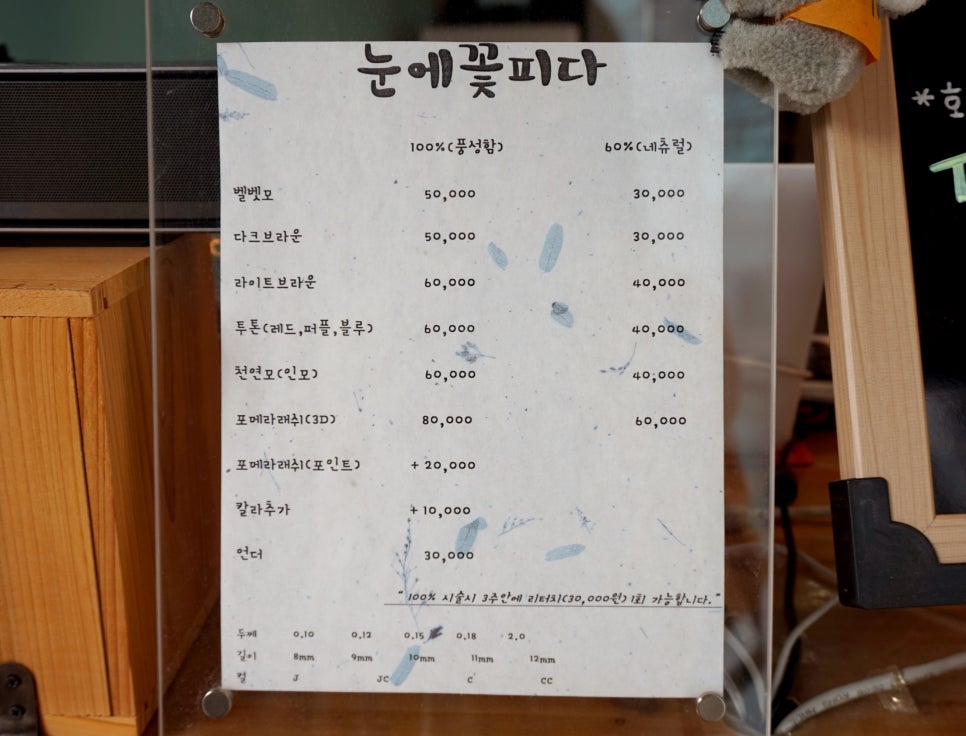 눈에꽃피다
100%(풍성함) 60%(네츄럴)
벨벳모 50,000 30,000
다크브라운 50,000 30,000
라이트브라운 60,000 40,000
투톤(레드,퍼플,블루) 60,000 40,000
천연모(인모) 60,000 40,000
포메라래쉬(3D) 80,000 60,000
포메라래쉬(포인트) + 20,000
칼라추가 + 10,000
언더 30,000
"100% 시술시 3주안에 리터치(30,000원) 1회 가능합니다."
두께 0.10 0.12 0.15 0.18 2.0
길이 8mm 9mm 10mm 11mm 12mm
컬 J JC C CC